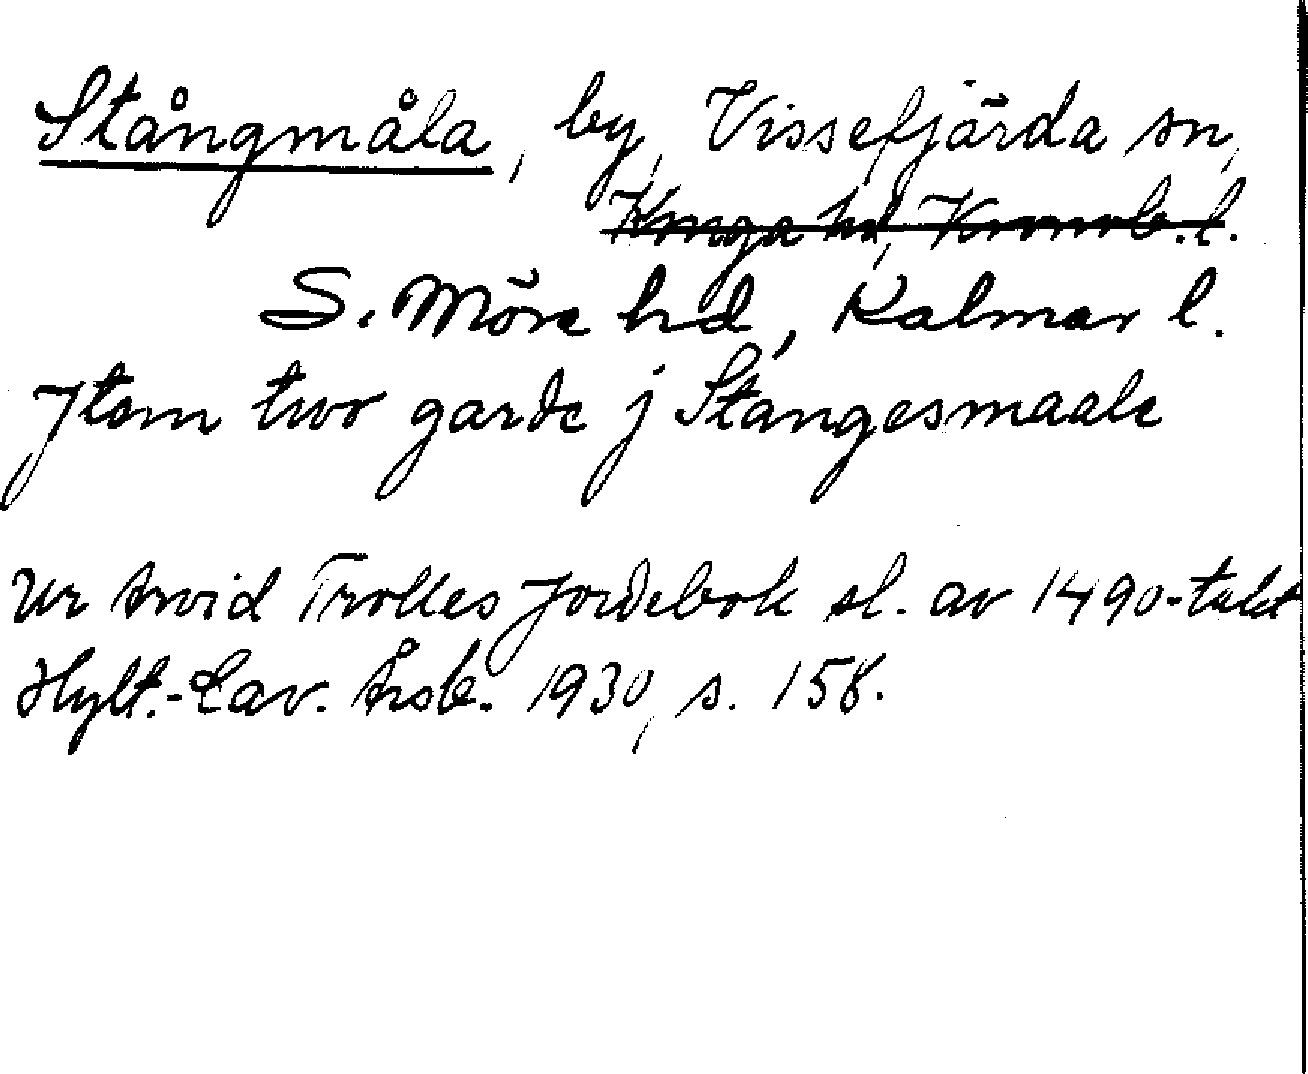 Stångmåla, by, Vissefjärda sn,
Konga hd, Kronob. l.
S. Möre hd, Kalmar l.
Jtem two garde j Stangesmaale
Ur Arvid Trolles Jordebok sl. av 1490-talet
Hylt.-Cav. Årsb. 1930, s. 158.